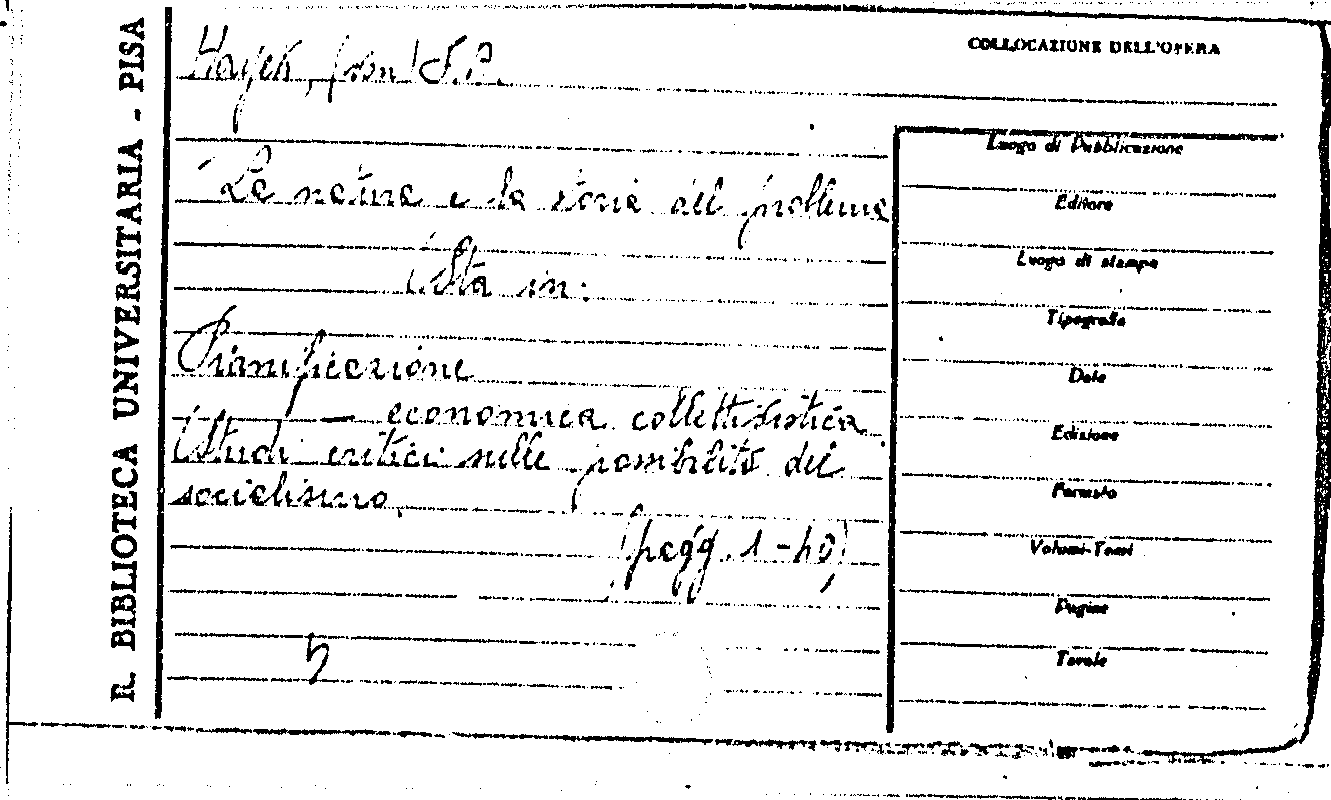 R. BIBLIOTECA UNIVERSITARIA - PISA
COLLOCAZIONE DELL'OPERA
Hayek, (von) F. A.
La natura e la storia del problema
Sta in:
Pianificazione
— economica collettivistica
Studi critici sulle possibilità del
socialismo.
(pagg. 1-40)
Luogo di Pubblicazione
Editore
Luogo di stampa
Tipografia
Data
Edizione
Formato
Volumi-Tomi
Pagine
Tavole